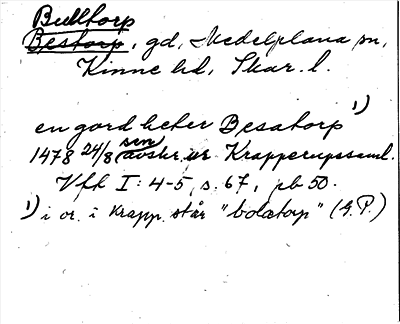 Bulltorp
Bestorp, gd, Medelplana sn,
Kinne hd, Skar. l.
1)
en gord heter Besatorp
sen
1478 24/8 avskr. ur Krapperupssaml.
Vfk I: 4-5, s. 67, pb 50.
1) i or. i Krapp. står "bolatorp" (G.P.)